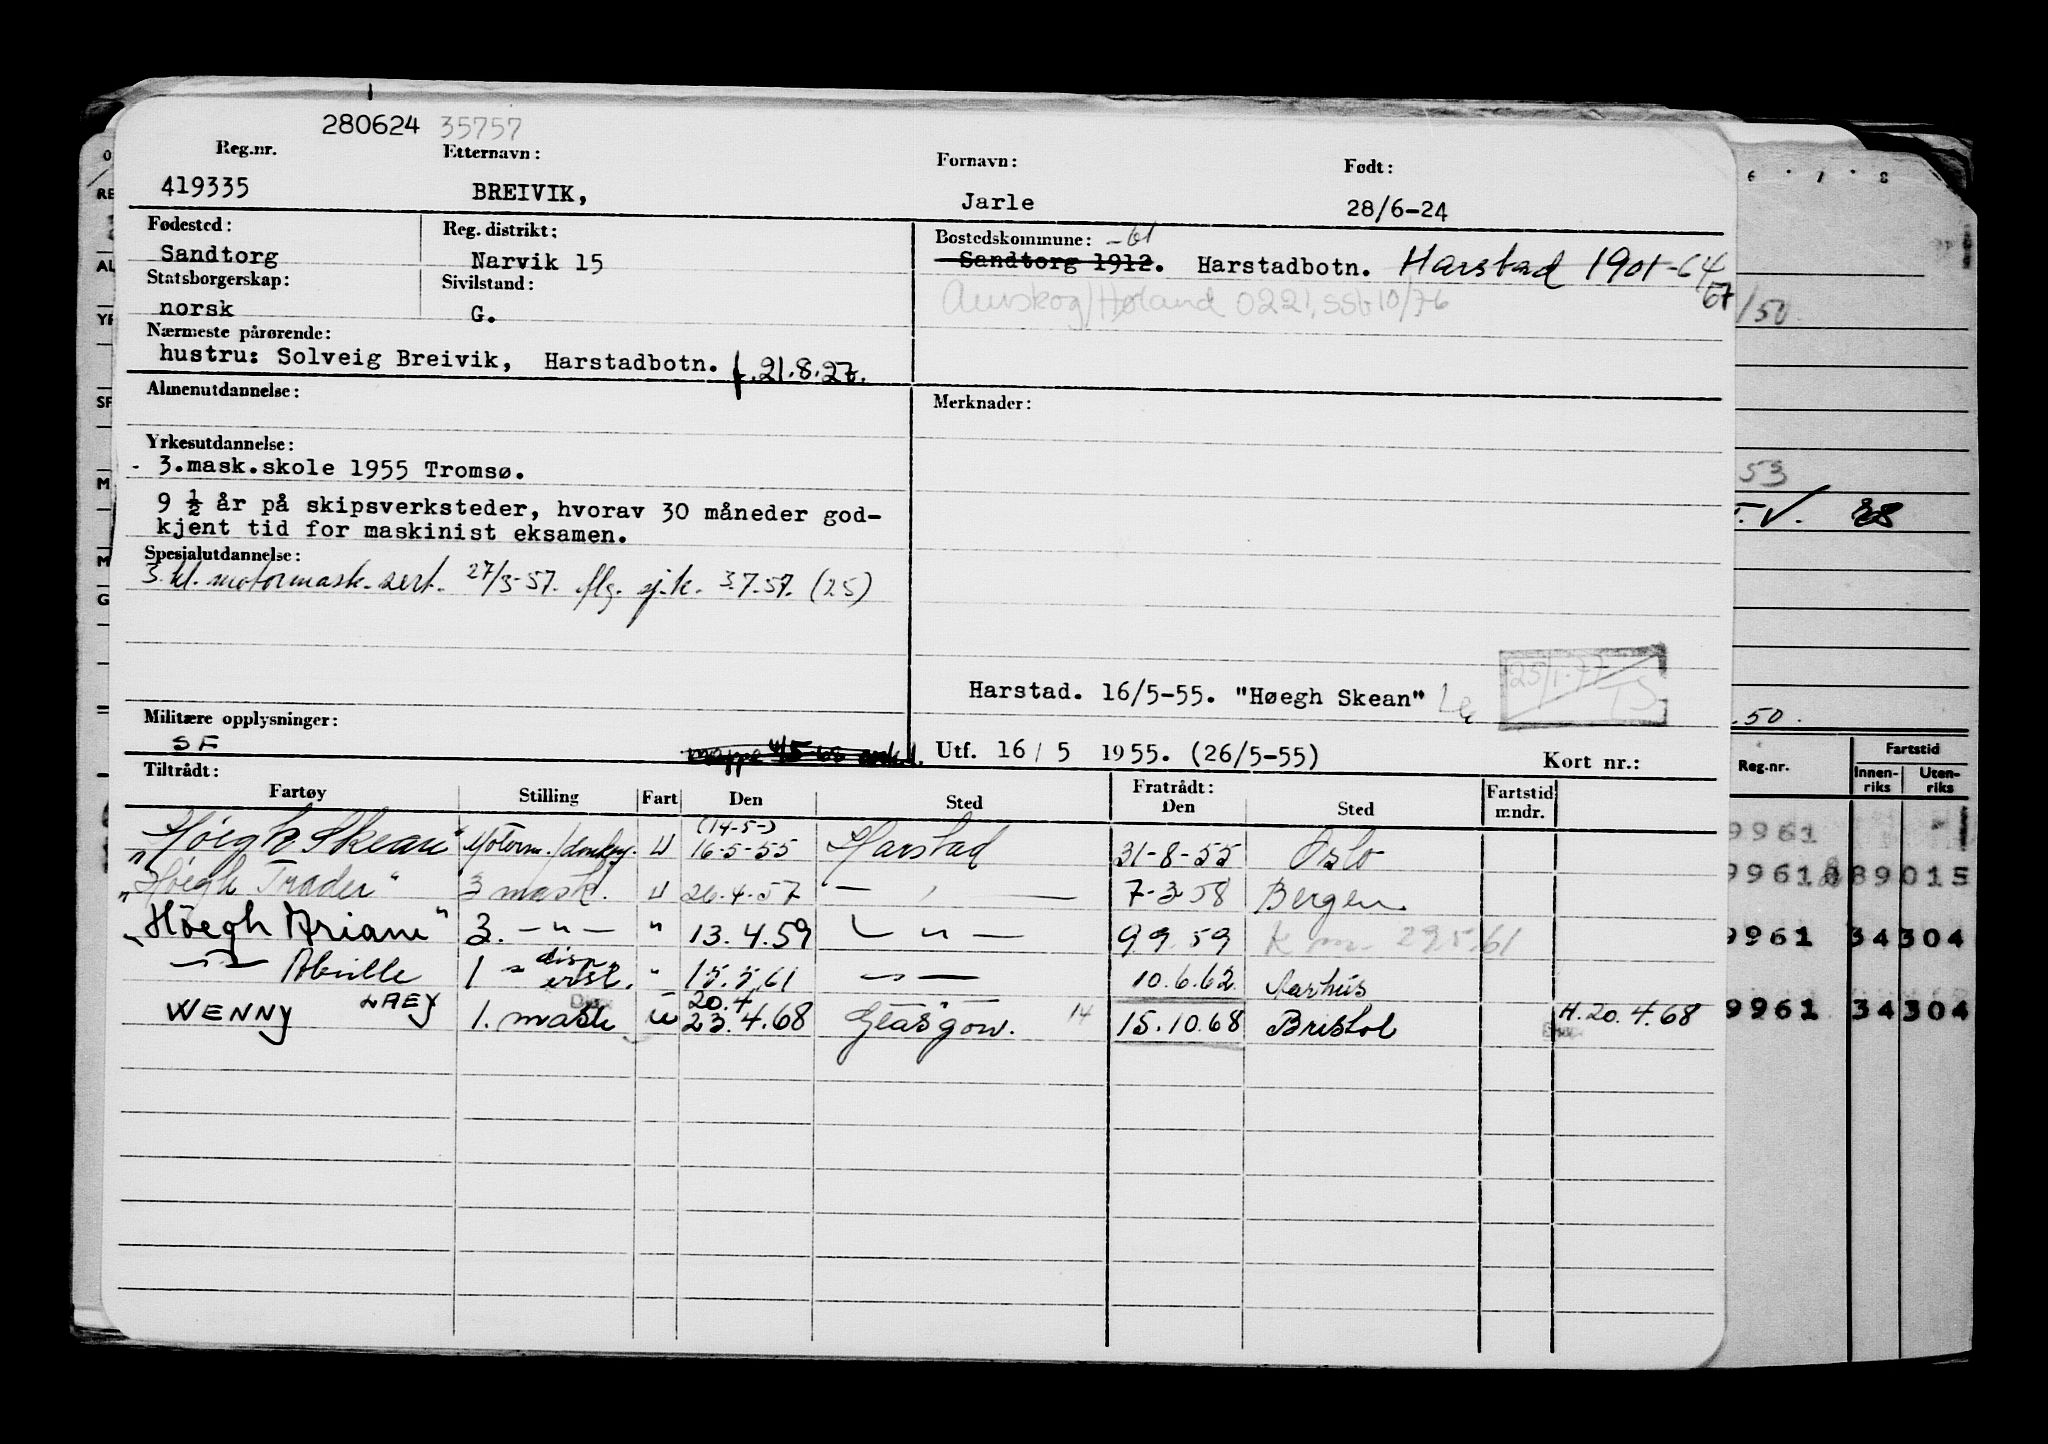 280624 35757
Reg.nr. Etternavn: Fornavn: Født:
419335 BREIVIK, Jarle 28/6-24
Fødested: Reg. distrikt: Bostedskommune: -61
Sandtorg Narvik 15 Sandtorg 1912. Harstadbotn. Harstad 1901-64
67
Statsborgerskap: Sivilstand:
norsk G. Aurskog/Høland 0221, SSb 10/76
Nærmeste pårørende:
hustru: Solveig Breivik, Harstadbotn. f. 21.8.27.
Almenutdannelse: Merknader:
Yrkesutdannelse:
3.mask.skole 1955 Tromsø.
9 ½ år på skipsverksteder, hvorav 30 måneder god-
kjent tid for maskinist eksamen.
Spesialutdannelse:
3. kl. motormask. sert. 27/3-57. flg. sj.k. 3.7.57. (25)
Harstad. 16/5-55. "Høegh Skean" 25/1-77
Militære opplysninger:
SF Utf. 16/5 1955. (26/5-55) Kort nr.:
Tiltrådt: Fratrådt:
Fartøy Stilling Fart Den Sted Den Sted Fartstid mndr.
(14-5-)
"Høegh Skean" Motorm./donkey. U 16-5-55 Harstad 31-8-55 Oslo
"Høegh Trader" 3 mask. U 26.4.57 — " — 7-3-58 Bergen.
"Høegh Ariane" 3. — " — " 13.4.59 — " — 9.9.59 29.5.61
— " — Abville 1 " disp. " 15.5.61 — " — 10.6.62 Aarhus
20.4
WENNY 1. mask U 23.4.68 Glasgow. 14 15.10.68 Bristol H.20.4.68
6 7 8
/50.
53
T.V. 38
.50.
Reg.nr. Fartstid
Innen-
riks Uten-
riks
9961
9961 89015
9961 34304
9961 34304